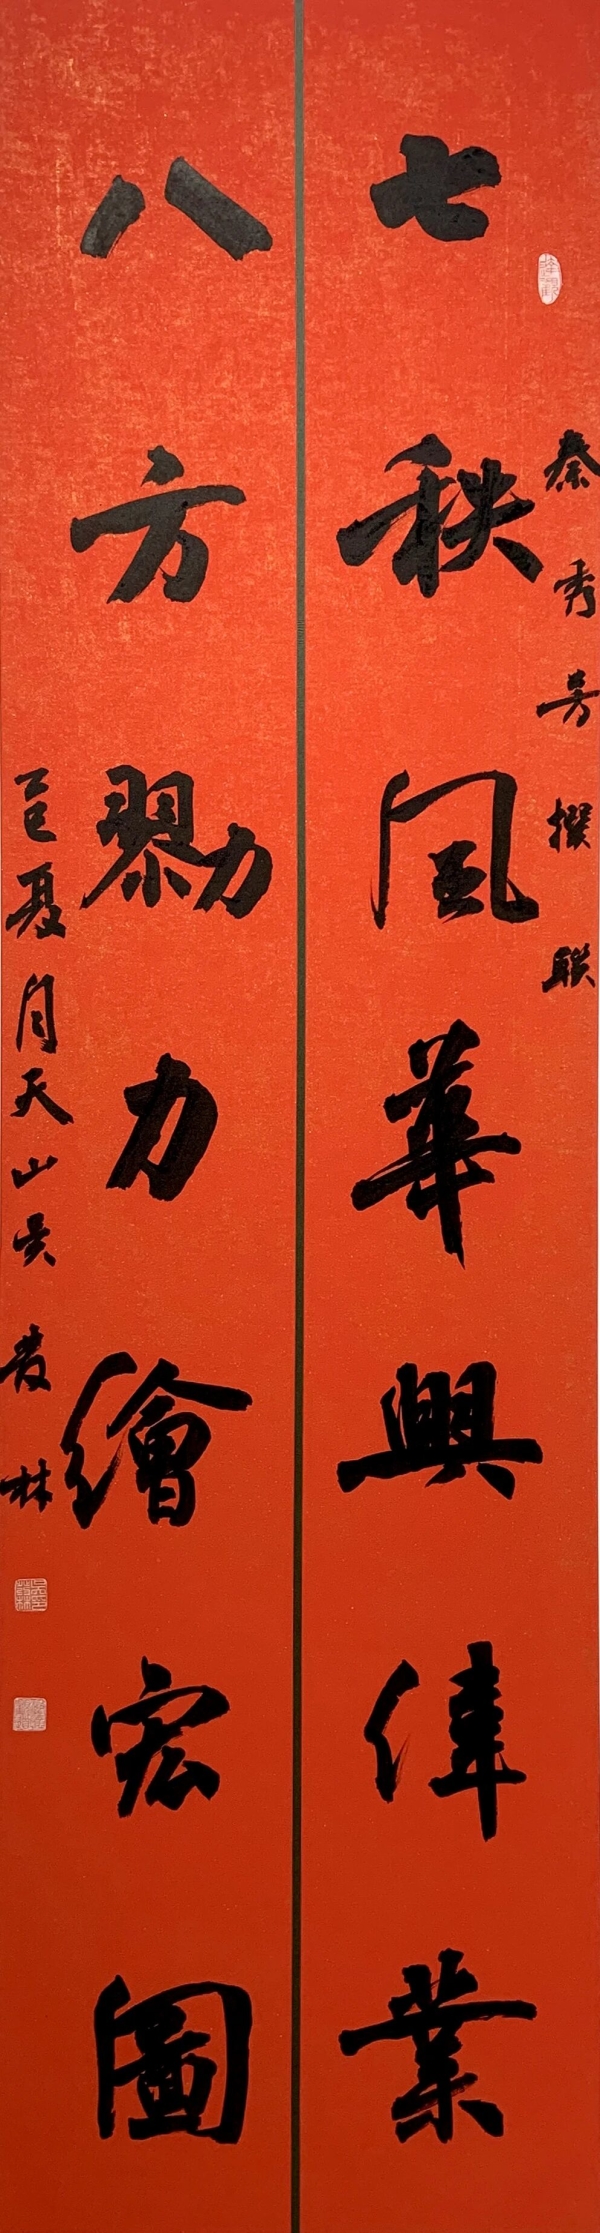 秦秀芳撰聯
七秩風華興偉業
八方勠力繪宏圖
乙巳夏月天山吴發林